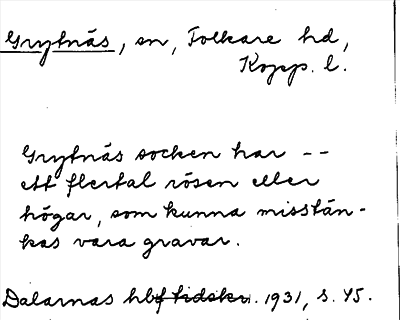 Grytnäs, sn, Folkare hd,
Kopp. l.
Grytnäs socken har --
ett flertal rösen eller
högar, som kunna misstän-
kas vara gravar.
Dalarnas hbf tidskr. 1931, s. 45.